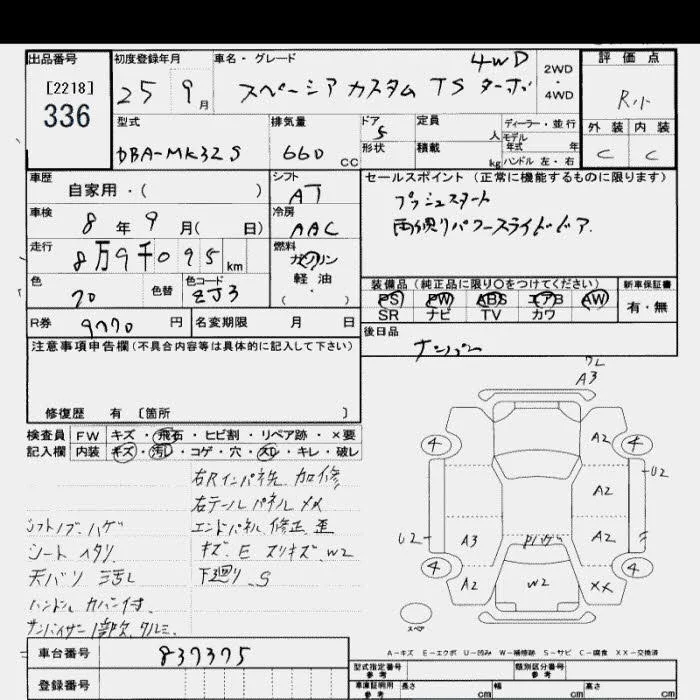 出品番号
[2218]
336
初度登録年月
25 9月
車名・グレード
4WD
スペーシア カスタム TS ターボ
2WD・4WD
評価点
R小
外装 内装
C C
型式
DBA-MK32S
排気量
660 cc
ドア 5
形状
定員 人
積載 kg
ディーラー・並行
モデル年式 年
ハンドル 左・右
車歴
自家用・( )
シフト
AT
セールスポイント (正常に機能するものに限ります)
プッシュスタート
両側パワースライドドア.
車検
8年 9月( 日)
冷房
AAC
走行
8万9千095km
燃料
ガソリン
軽油
( ・ )
色
色替
色コード
ZJ3
装備品 (純正品に限り○をつけてください)
PS PW ABS エアB AW
SR ナビ TV カワ
新車保証書
有・無
R券
9770 円
名変期限 月 日
後日品
ナンバー
注意事項申告欄 (不具合内容等は具体的に記入して下さい)
修復歴 有 〔箇所 〕
検査員記入欄
FW キズ・飛石・ヒビ割・リペア跡・×要
内装 キズ・汚レ・コゲ・穴・スレ・キレ・破レ
右Rインパネ先 加修
右テールパネル XX
シフトノブ ハゲ
エンドパネル 修正 歪
シート ヘタリ
キズ、E スリキズ、W2
天バリ 汚レ
下廻リ、S
ハンドル カバー付.
サンバイザー 1部欠、タルミ.
A3
4 A2 4
A2 U2
U2 A3 A2
4 A2 W2 XX 4
スペア
A-キズ E-エクボ U-凹み W-補修跡 S-サビ C-腐食 XX-交換済
車台番号
837375
登録番号
型式指定番号 参考
類別区分番号 参考
車庫証明用 参考
長さ cm
幅 cm
高さ cm